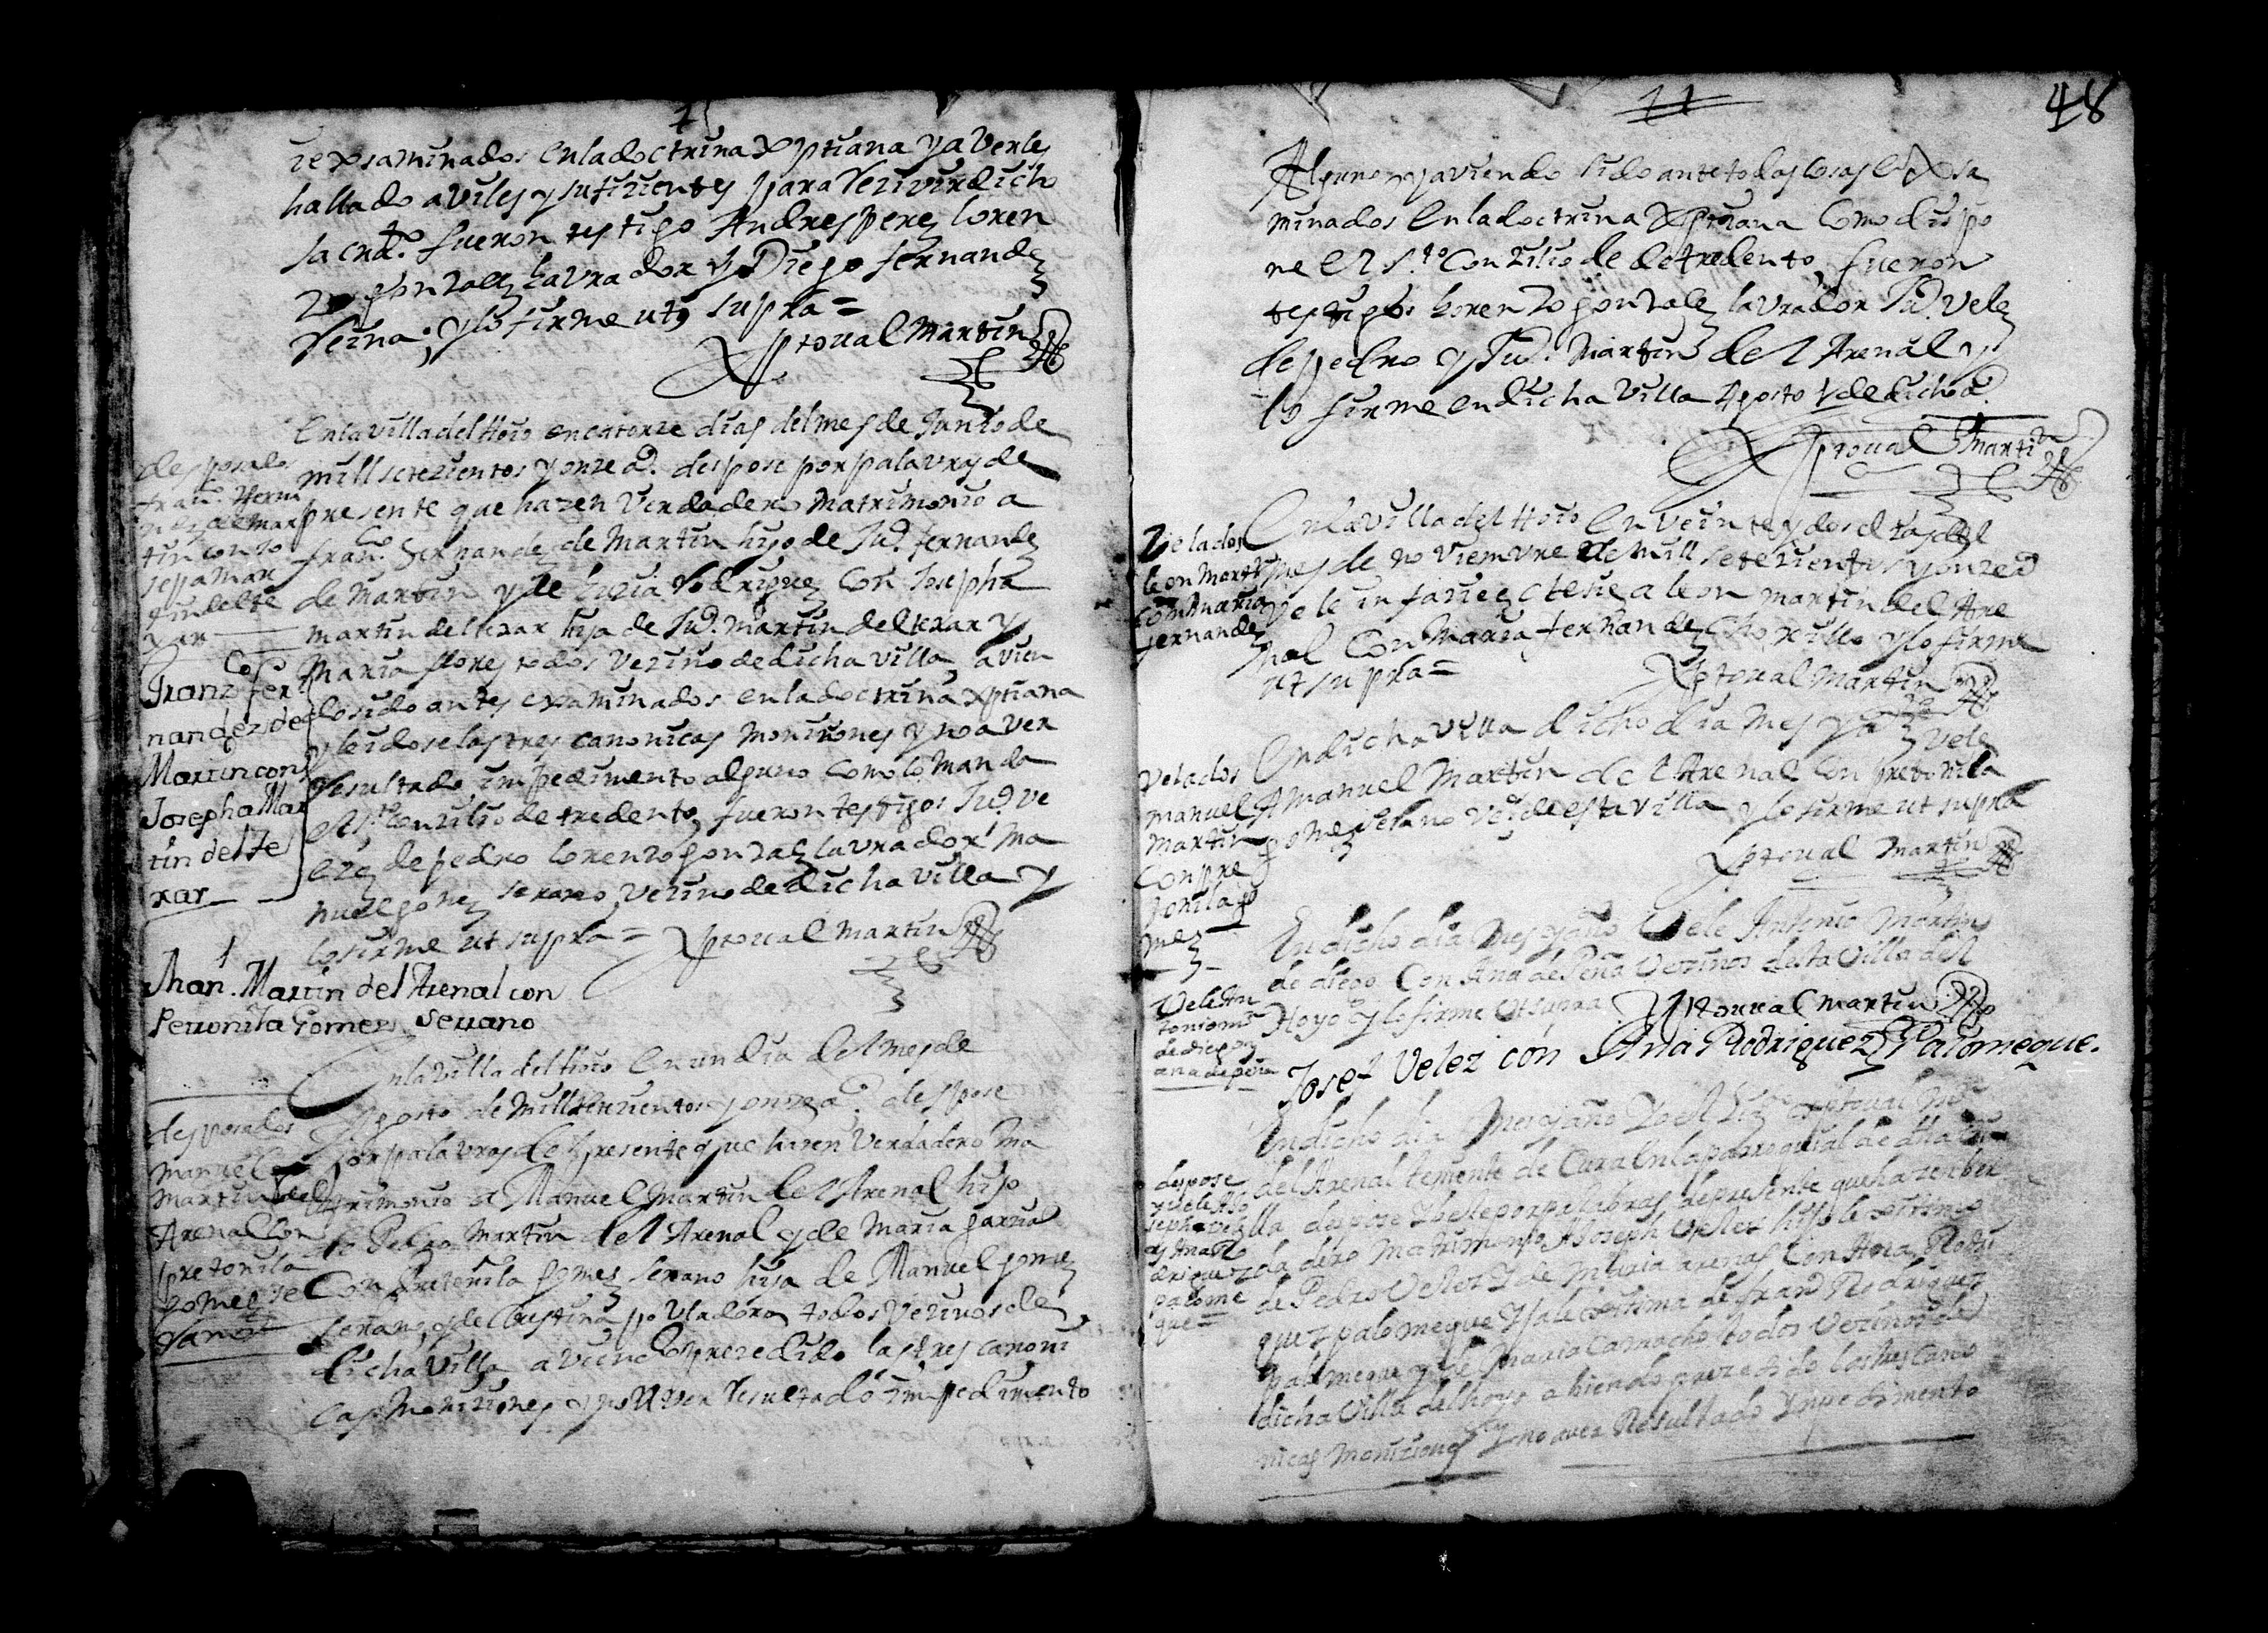 ie exsaminados en la doctrina xptiana y averles
hallado aviles y sufizientes para rezivir dicho
sacrdto. fueron testigo Andres perez loren
zo gonzalez lavrador y Diego fernandez
Reina; y lo firme ut supra =
Xptoual Martin
desposados
fran.co Ferna
ndez de Mar
tin con Jo
sepa Mar
tin del te
xar
En la villa del Hoio en catorze dias del mes de Junio de
mill setezientos y onze a.s despose por palavras de
presente que hazen verdadero matrimonio a
fran.co fernandez de Martin hijo de Ju.o fernandez
de Martin y de Luzia Rodriguez con Josepha
martin del texar hija de Ju.o Martin del texar y
Maria flores todos vezinos de dicha villa avien
do sido antes examinados en la doctrina xptiana
y leidose las tres canonicas moniziones y no aver
resultado impedimento alguno como lo manda
el s.to Conzilio de tredento, fueron testigos Ju.o ve
lez de pedro lorenzo gonzalez lavrador Ma
nuel gomez serano vezino de dicha villa y
lo firme ut supra = Xptoual Martin
Franz.co fer
nandez de
Martin con
Josepha Mar
tin del Te
xar
1
Jhan. Martin del Arenal con
Petronila Gomez Serrano
desposados
Manuel
Martin del
Arenal con
pretonila
gomez se
rano
En la villa del Hoio en un dia del mes de
Agosto de mill setezientos y onze a.s despose
por palavras de presente que hazen verdadero ma
trimonio a Manuel Martin del Arenal hijo
de Pedro Martin del Arenal y de Maria garzia
con Pretenila gomez serano hija de Manuel gomez
serano y de Cristina povladora todos vezinos de
dicha villa aviendo prezedido las tres canoni
cas moniziones y no aver resultado impedimento
11
48
Alguno y aviendo sido ante todas cosas exsa
minados en la doctrina xptiana como dispo
ne el s.to Conzilio de de tredento, fueron
testigos lorenzo gonzalez lavrador Ju.o velez
de pedro y Ju.o Martin del Arenal y
lo firme en dicha villa Agosto 1 de dicho a.
Xptoual Martin
Velados
leon Martin
con Maria
fernandez
En la villa del Hoio en veinte y dos dias del
mes de noviemvre de mill setezientos y onze a
vele in facie eclesie a leon martin del Are
nal con Maria fernandez chorillo y lo firme
ut supra =
Xptoual Martin
Velados
manuel
Martin
con pre
tonila go
mez
En dicha villa dicho dia mes y a vele
A Manuel Martin del Arenal con pretonila
gomez serano vez.os de esta villa y lo firme ut supra
Xptoual Martin
Vele An
tonio m.n
de diego y
ana de peña
En dicho dia mes y año Vele Antonio Martin
de diego con Ana de Peña vezinos desta villa del
Hoyo y lo firme ut supra Xptoual Martin
Jose.f Velez con Ana Rodriguez Palomeque.
despose
y vele a Jo
seph velez
y Ana Ro
driguez
palome
que =
En dicho dia mes y año Yo el Liz.do Xptoual M.n
del Arenal teniente de Cura en la parroquial de dha vi
lla despose y bele por palabras de presente que hazen ber
dadero matrimonio A Joseph Velez hijo lexitimo
de Pedro Velez y de Maria arenas con Ana Rodri
guez palomeque Hija lexitima de fran.co Rodriguez
Palomeque y de Maria Camacho todos vezinos de
dicha Villa del hoyo abiendo prezedido las tres cano
nicas moniziones y no auer Resultado Ympedimento